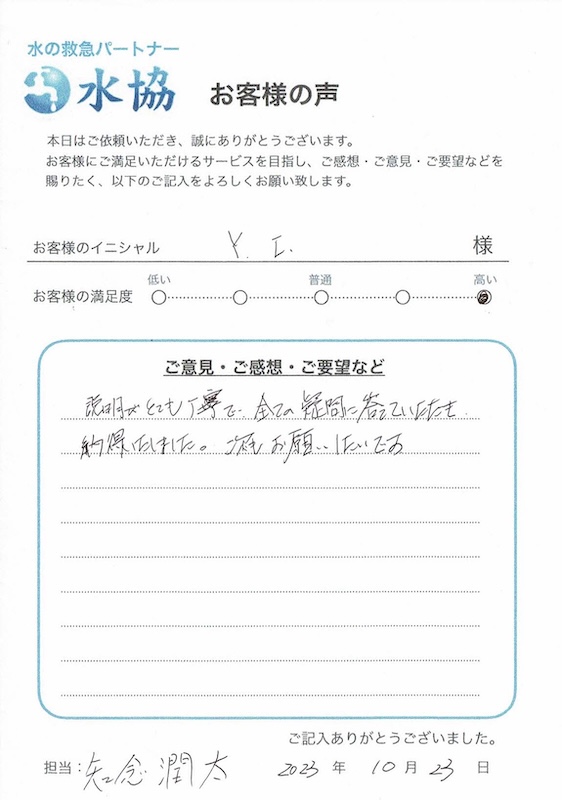 水の救急パートナー
水協 お客様の声
本日はご依頼いただき、誠にありがとうございます。
お客様にご満足いただけるサービスを目指し、ご感想・ご意見・ご要望などを
賜りたく、以下のご記入をよろしくお願い致します。
お客様のイニシャル Y. I. 様
低い 普通 高い
お客様の満足度
ご意見・ご感想・ご要望など
説明がとても丁寧で、全ての疑問に答えていただき
納得いたしました。次もお願いしたいです
ご記入ありがとうございました。
担当：知念潤太 2023 年 10 月 23 日